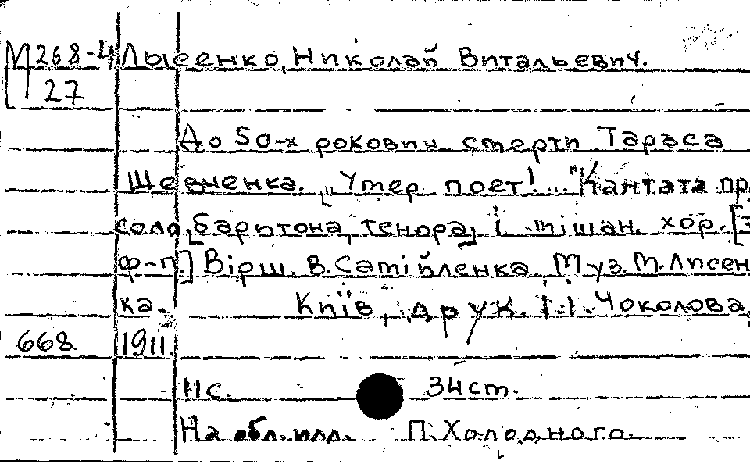 М 268-4 Лысенко, Николай Витальевич.
27
До 50-х роковин смерти Тараса
Шевченка. „Умер поет!..." Кантата
соло [баритона, тенора] і мішан. хор. [з
ф-п.] Вірш. В. Самійленка. Муз. М. Лисен
ка. Київ, друк. І.І. Чоколова,
668 1911.
11 с. 34 ст.
На обл. мал. П. Холодного.